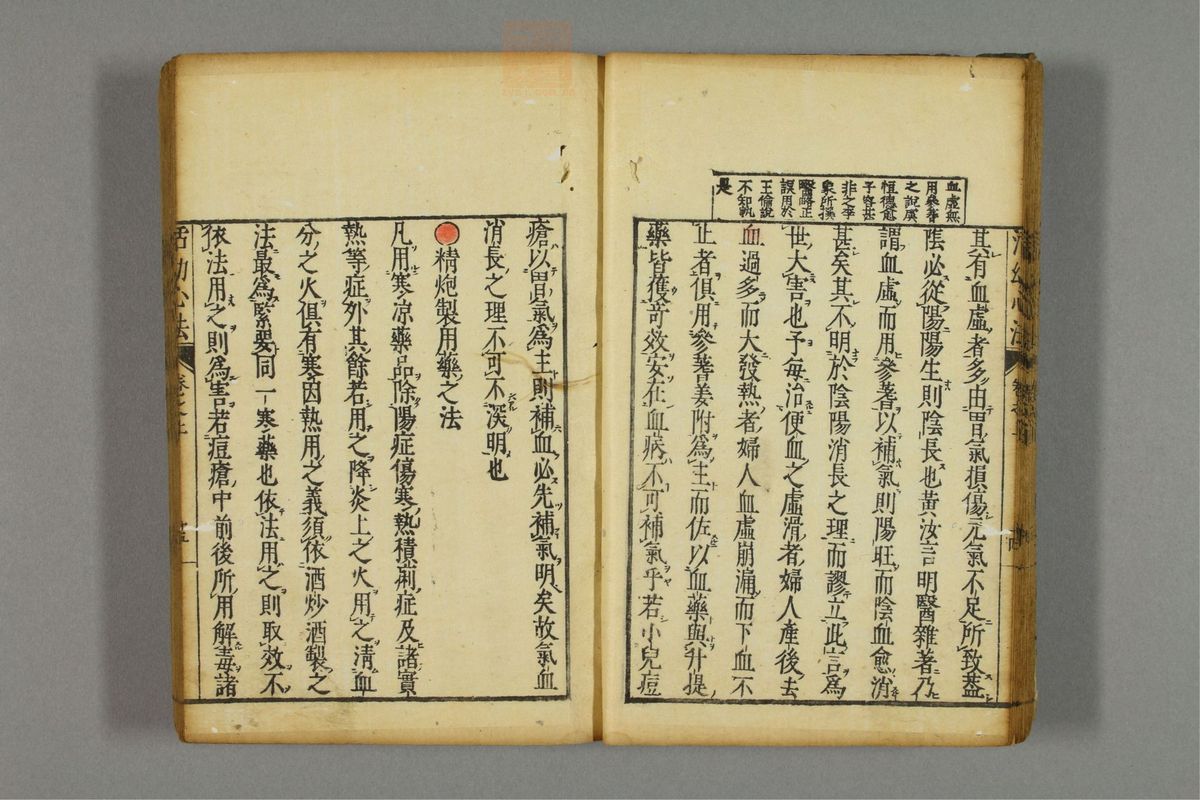 血虛無
用參蓍
之說虞
恒德愈
子容甚
非之李
象所撰
醫略正
誤用於
王倫說
不知孰
是
其有血虛者多由胃氣損傷元氣不足所致蓋
陰必從陽陽生則陰長也黃汝言明醫雜著乃
謂血虛而用參蓍以補氣則陽旺而陰血愈消
甚矣其不明於陰陽消長之理而謬立此言爲
世大害也予每治便血之虛滑者婦人產後去
血過多而大發熱者婦人血虛崩漏而下血不
止者俱用參蓍姜附爲主而佐以血藥與升提
藥皆獲奇效安在血病不可補氣乎若小兒痘
瘡以胃氣爲主則補血必先補氣明矣故氣血
消長之理不可不深明也
精炮製用藥之法
凡用寒凉藥品除陽症傷寒熱積痢症及諸實
熱等症外其餘若用之降炎上之火用之清血
分之火俱有寒因熱用之義須依酒炒酒製之
法最爲緊要同一寒藥也依法用之則取效不
依法用之則爲害若痘瘡中前後所用解毒諸
活幼心法